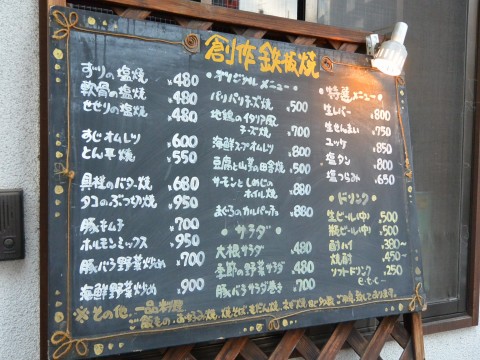 創作鉄板焼
ずりの塩焼 ¥480
軟骨の塩焼 ¥480
せせりの塩焼 ¥480
すじオムレツ ¥600
とん平焼 ¥550
貝柱のバター焼 ¥680
タコのぶつ切り焼 ¥950
豚キムチ ¥700
ホルモンミックス ¥950
豚バラ野菜炒め ¥700
海鮮野菜炒め ¥900
・オリジナルメニュー・
パリパリチーズ焼 ¥500
地鶏のイタリア風
チーズ焼 ¥700
海鮮スープオムレツ ¥800
豆腐と山芋の田舎焼 ¥500
サーモンとしめじの
ホイル焼 ¥880
まぐろのカルパッチョ ¥880
・サラダ・
大根サラダ ¥480
季節の野菜サラダ ¥480
豚バラサラダ巻き ¥700
・特選メニュー・
生レバー ¥800
生せんまい ¥750
ユッケ ¥850
塩タン ¥800
塩つらみ ¥650
・ドリンク・
生ビール(中) ¥500
瓶ビール(中) ¥500
酎ハイ ¥380~
焼酎 ¥450~
ソフトドリンク ¥250
e.t.c.
※その他、一品料理
ご飯もの・お好み焼・焼そば・モダン焼・ネギ焼